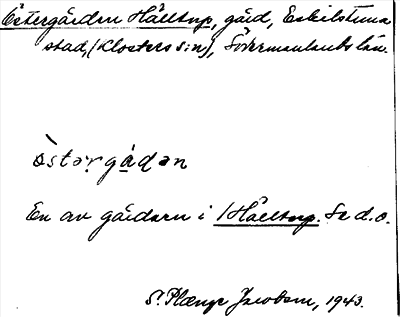 Östergården Hälltorp, gård, Eskilstuna
stad, (Klosters s:n), Södermanlands län.
òstərgádən
En av gårdarna i Hälltorp. Se d.o.
S. Plænge Jacobson, 1943.